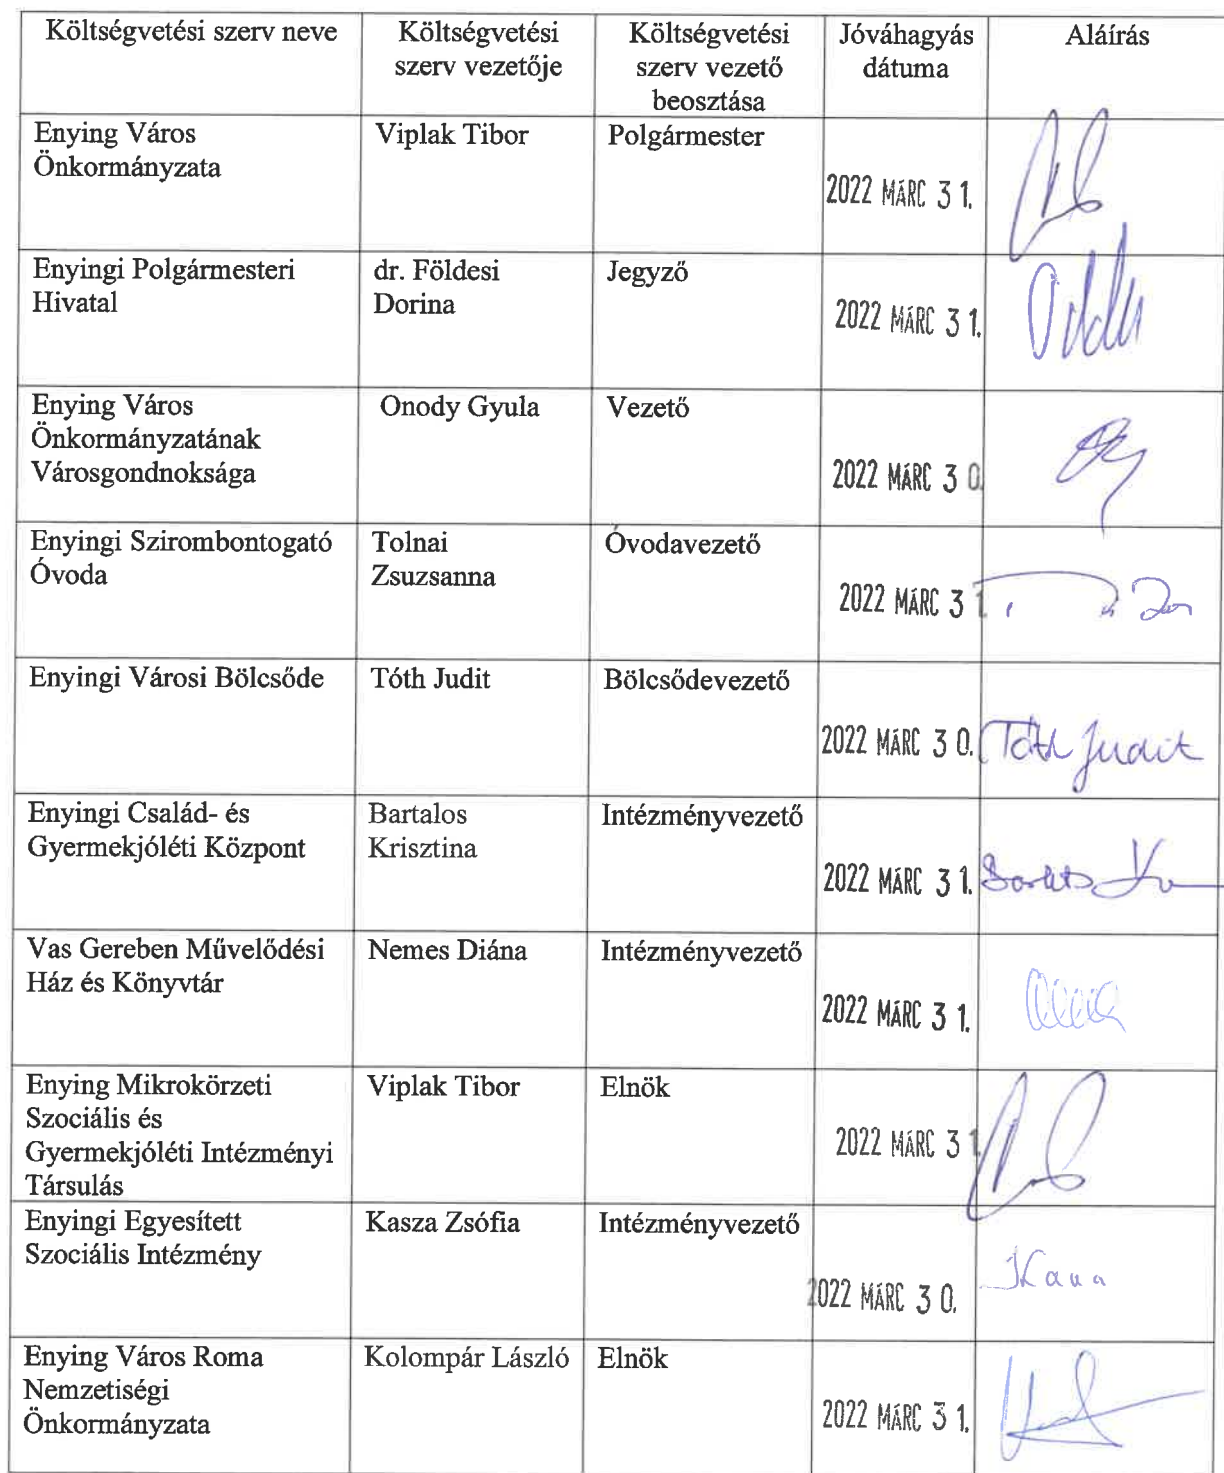 Költségvetési szerv neve
Költségvetési
szerv vezetője
Költségvetési
szerv vezető
beosztása
Jóváhagyás
dátuma
Aláírás
Enying Város
Önkormányzata
Viplak Tibor
Polgármester
2022 MÁRC 31.
Enyingi Polgármesteri
Hivatal
dr. Földesi
Dorina
Jegyző
2022 MÁRC 31.
Enying Város
Önkormányzatának
Városgondnoksága
Onody Gyula
Vezető
2022 MÁRC 30.
Enyingi Szirombontogató
Óvoda
Tolnai
Zsuzsanna
Óvodavezető
2022 MÁRC 31.
Enyingi Városi Bölcsőde
Tóth Judit
Bölcsődevezető
2022 MÁRC 30.
Tóth Judit
Enyingi Család- és
Gyermekjóléti Központ
Bartalos
Krisztina
Intézményvezető
2022 MÁRC 31.
Vas Gereben Művelődési
Ház és Könyvtár
Nemes Diána
Intézményvezető
2022 MÁRC 31.
Enying Mikrokörzeti
Szociális és
Gyermekjóléti Intézményi
Társulás
Viplak Tibor
Elnök
2022 MÁRC 31
Enyingi Egyesített
Szociális Intézmény
Kasza Zsófia
Intézményvezető
2022 MÁRC 30.
Enying Város Roma
Nemzetiségi
Önkormányzata
Kolompár László
Elnök
2022 MÁRC 31.